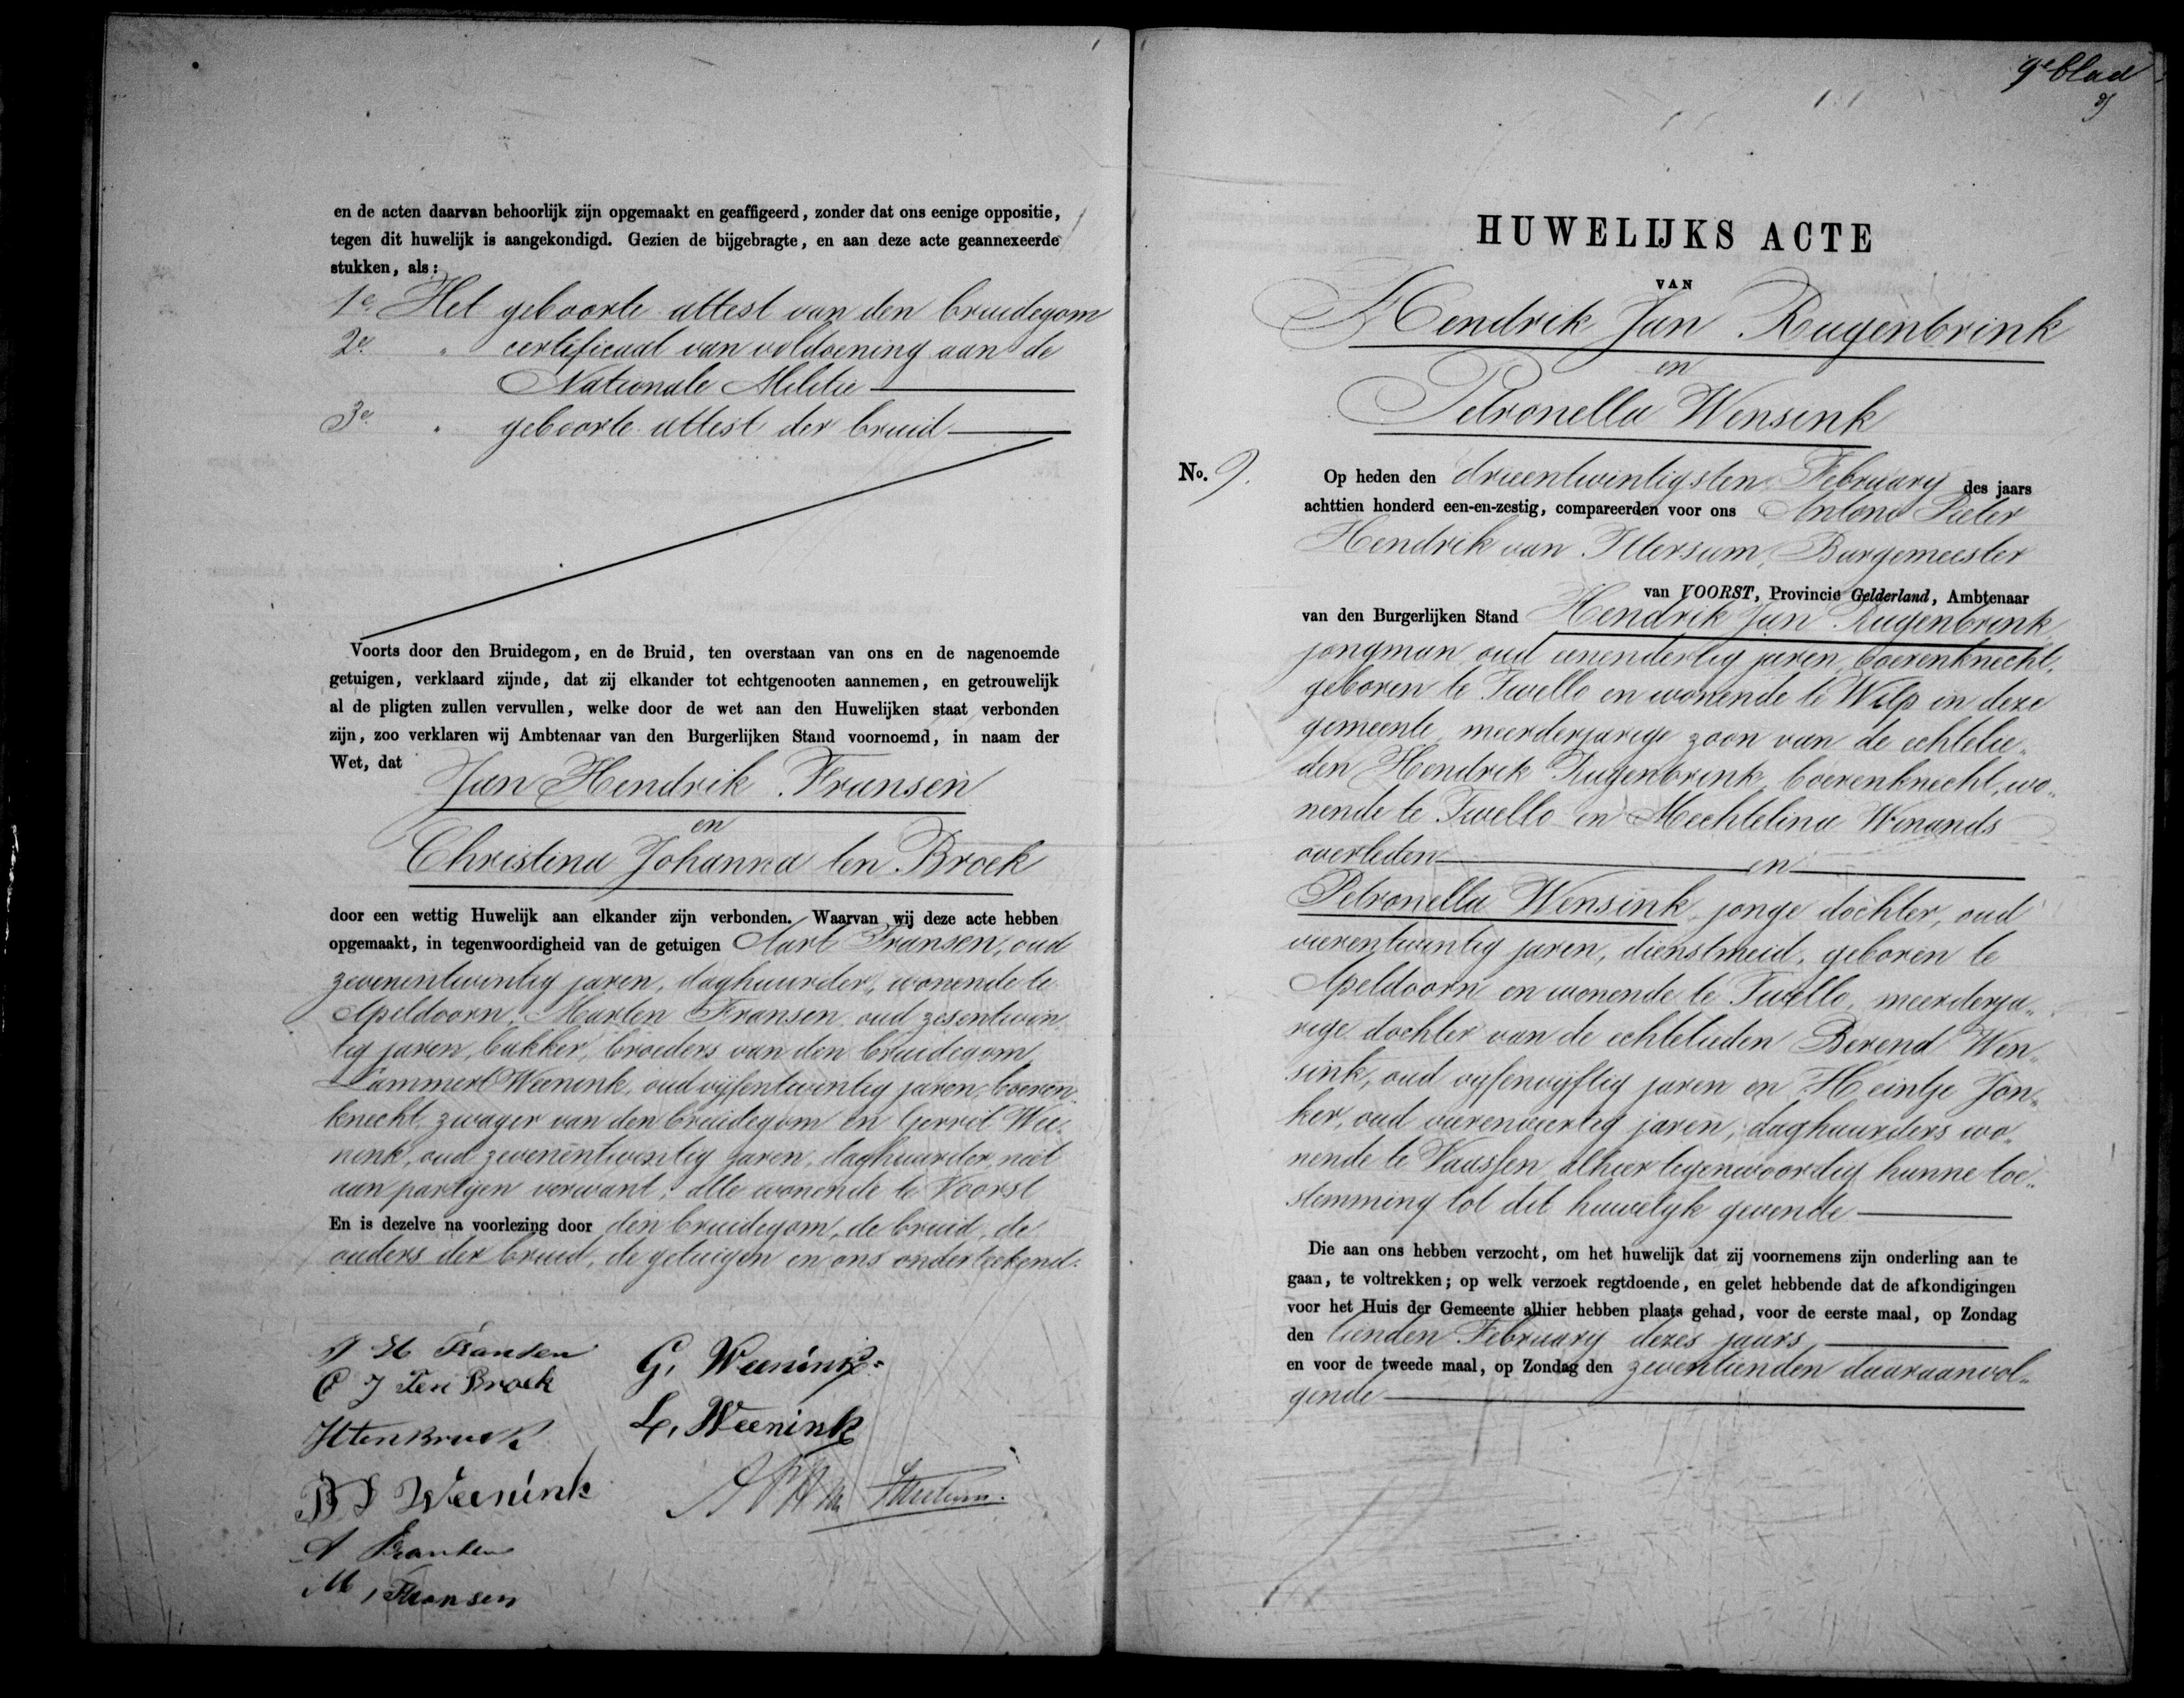 en de acten daarvan behoorlijk zijn opgemaakt en geaffigeerd, zonder dat ons eenige oppositie,
tegen dit huwelijk is aangekondigd. Gezien de bijgebragte, en aan deze acte geannexeerde
stukken, als:
1e. Het geboorte attest van den bruidegom
2e. " certificaat van voldoening aan de
Nationale Militie
3e. " geboorte attest der bruid
Voorts door den Bruidegom, en de Bruid, ten overstaan van ons en de nagenoemde
getuigen, verklaard zijnde, dat zij elkander tot echtgenooten aannemen, en getrouwelijk
al de pligten zullen vervullen, welke door de wet aan den Huwelijken staat verbonden
zijn, zoo verklaren wij Ambtenaar van den Burgerlijken Stand voornoemd, in naam der
Wet, dat
Jan Hendrik Fransen
en
Christina Johanna ten Broek
door een wettig Huwelijk aan elkander zijn verbonden. Waarvan wij deze acte hebben
opgemaakt, in tegenwoordigheid van de getuigen Aart Fransen, oud
zevenentwintig jaren, daghuurder, wonende te
Apeldoorn, Marten Fransen oud zesentwin
tig jaren, bakker, broeders van den bruidegom,
Lammert Weenink, oud vijfentwintig jaren, boeren
knecht, zwager van den bruidegom en Gerrit Wee„
nink, oud zevenentwintig jaren, daghuurder, niet
aan partijen verwant, alle wonende te Voorst
En is dezelve na voorlezing door den bruidegom, de bruid, de
ouders der bruid, de getuigen en ons onderteekend.
J H Fransen
C J Ten Broek
H ten Broek
B J Weenink
A Fransen
M, Fransen
G, Weenink
L, Weenink
9e blad
HUWELIJKS ACTE
VAN
Hendrik Jan Rugenbrink
en
Petronella Wensink
No. 9.
Op heden den drieentwintigsten February des jaars
achttien honderd een-en-zestig, compareerden voor ons Antono Pieter
Hendrik van Ittersum, Burgemeester
van VOORST, Provincie Gelderland, Ambtenaar
van den Burgerlijken Stand Hendrik Jan Rugenbrink
jongman oud eenendertig jaren, boerenknecht,
geboren te Twello en wonende te Wilp in deze
gemeente, meerderjarige zoon van de echtelie„
den Hendrik Rugenbrink, boerenknecht, wo„
nende te Twello en Mechtelina Winands
overleden en
Petronella Wensink, jonge dochter, oud
vierentwintig jaren, dienstmeid, geboren te
Apeldoorn en wonende te Twello, meerderja„
rige dochter van de echtelieden Berend Wen„
sink, oud vijfenvijftig jaren en Heintje Jon„
ker, oud vierenveertig jaren, daghuurders wo„
nende te Vaassen, alhier tegenwoordig hunne toe„
stemming tot dit huwelijk gevende
Die aan ons hebben verzocht, om het huwelijk dat zij voornemens zijn onderling aan te
gaan, te voltrekken; op welk verzoek regtdoende, en gelet hebbende dat de afkondigingen
voor het Huis der Gemeente alhier hebben plaats gehad, voor de eerste maal, op Zondag
den tienden February dezes jaars
en voor de tweede maal, op Zondag den zeventienden daaraanvol„
gende